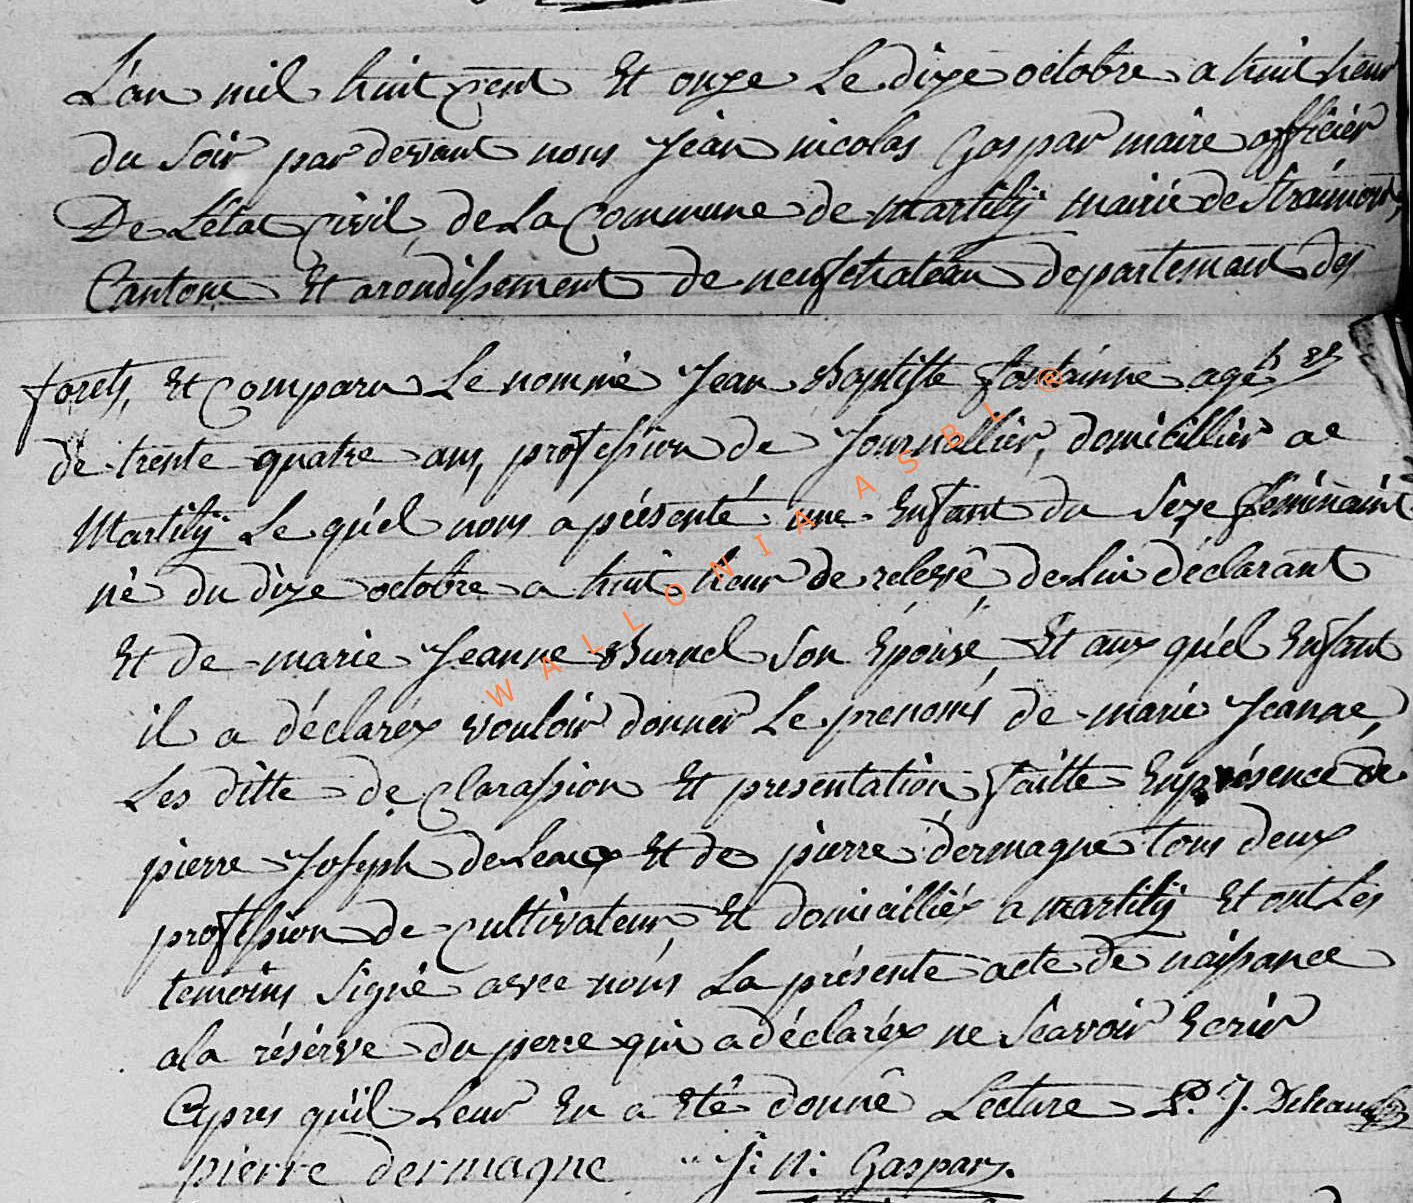 L'an mil huit cent Et onze Le dixe octobre a huit heur
du Soir par devant nous Jean nicolas Gaspar maire officier
De L'etat Civil, de La Commune de Martilij mairie de Straimont,
Canton Et arondissement de neufchateau departement des
forets, Et Comparu Le nommé Jean Baptiste fontainne agé
de trente quatre ans, profession de Journallier, domicillier a
Martilij Le quel nous a présenté une Enfant du Sexe feminaint
né du dixe octobre a huit heur de relevé de Lui déclarant
Et de marie Jeanne Burnel Son Epouse, Et aux quel Enfant
il a déclaréx vouloir donner Le prenoms de marie Jeanne,
Les ditte de Clarassion Et presentation faitte En présence de
pierre Joseph deLeaux Et de pierre dermagne tous deux
profession de Cultivateur Et domicilliéx a martilij Et ont Les
temoins Signé avec nous La présente acte de naissance
a la résérve du perre qui a déclaréx ne Scavoir Ecrir
Apres qu'il Leur En a Eté donné Lecture P. J. Deleau
pierre dermagne J: N: Gaspar.
WALLONIA ASBL ®